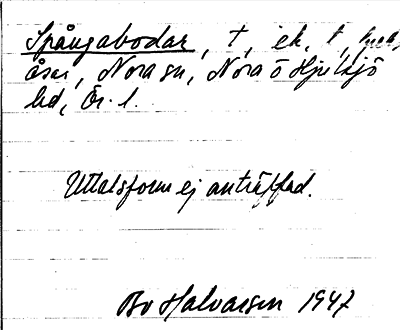 Spångabodar, t, ek, t,
åsar, Nora sn, Nora o Hjulsjö
bd, Ör. l.
Uttalsform ej anträffad.
Bo Halvarsson 1947